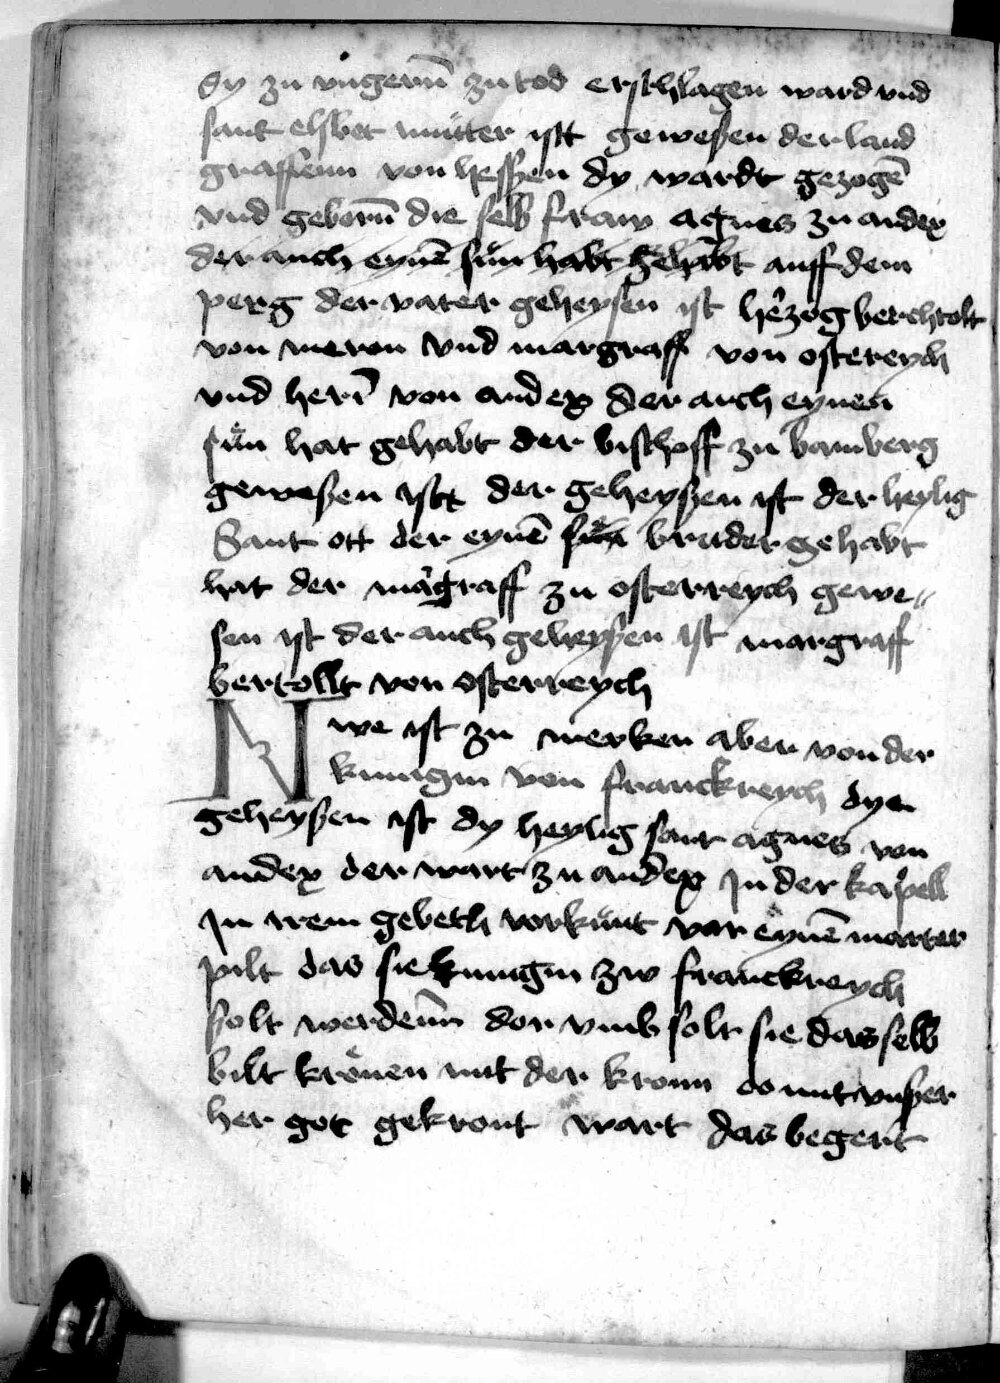 dy zu vngerñ zu tod erschlagen ward vnd
sant elsbet mutter istt gewesen der land
graffenn von hessen dy wardt gezogē
vnd geborñ die selb fraw agnes zu andex
der auch eynē sun habt gehabt auff dem
perg der vater geheysen ist hezog berchtolt
von meron vnd margraff von ostereych
vnd herr von andex der auch eynen
sun hat gehabt der bischoff zu bamberg
gewesen istt der geheysen ist der heylig
Sant ott der eynē sun bruder gehabt
hat der margraff zu osterreych gewe〃
sen ist der auch geheysen ist margraff
bertollt von osterreych
Nwe ist zu merken aber von der
kunigin von franckreych dye
geheysen ist dy heylig sant agnes von
andex der wart zu andex jn der kapell
jn irem gebeth vorkunt vor eynē marter
pilt das sie kunigin zw franckreych
solt werdenn dor vmb solt sie das selb
bilt kronen mit der kronn do mit vnser
her got gekront wart das begert